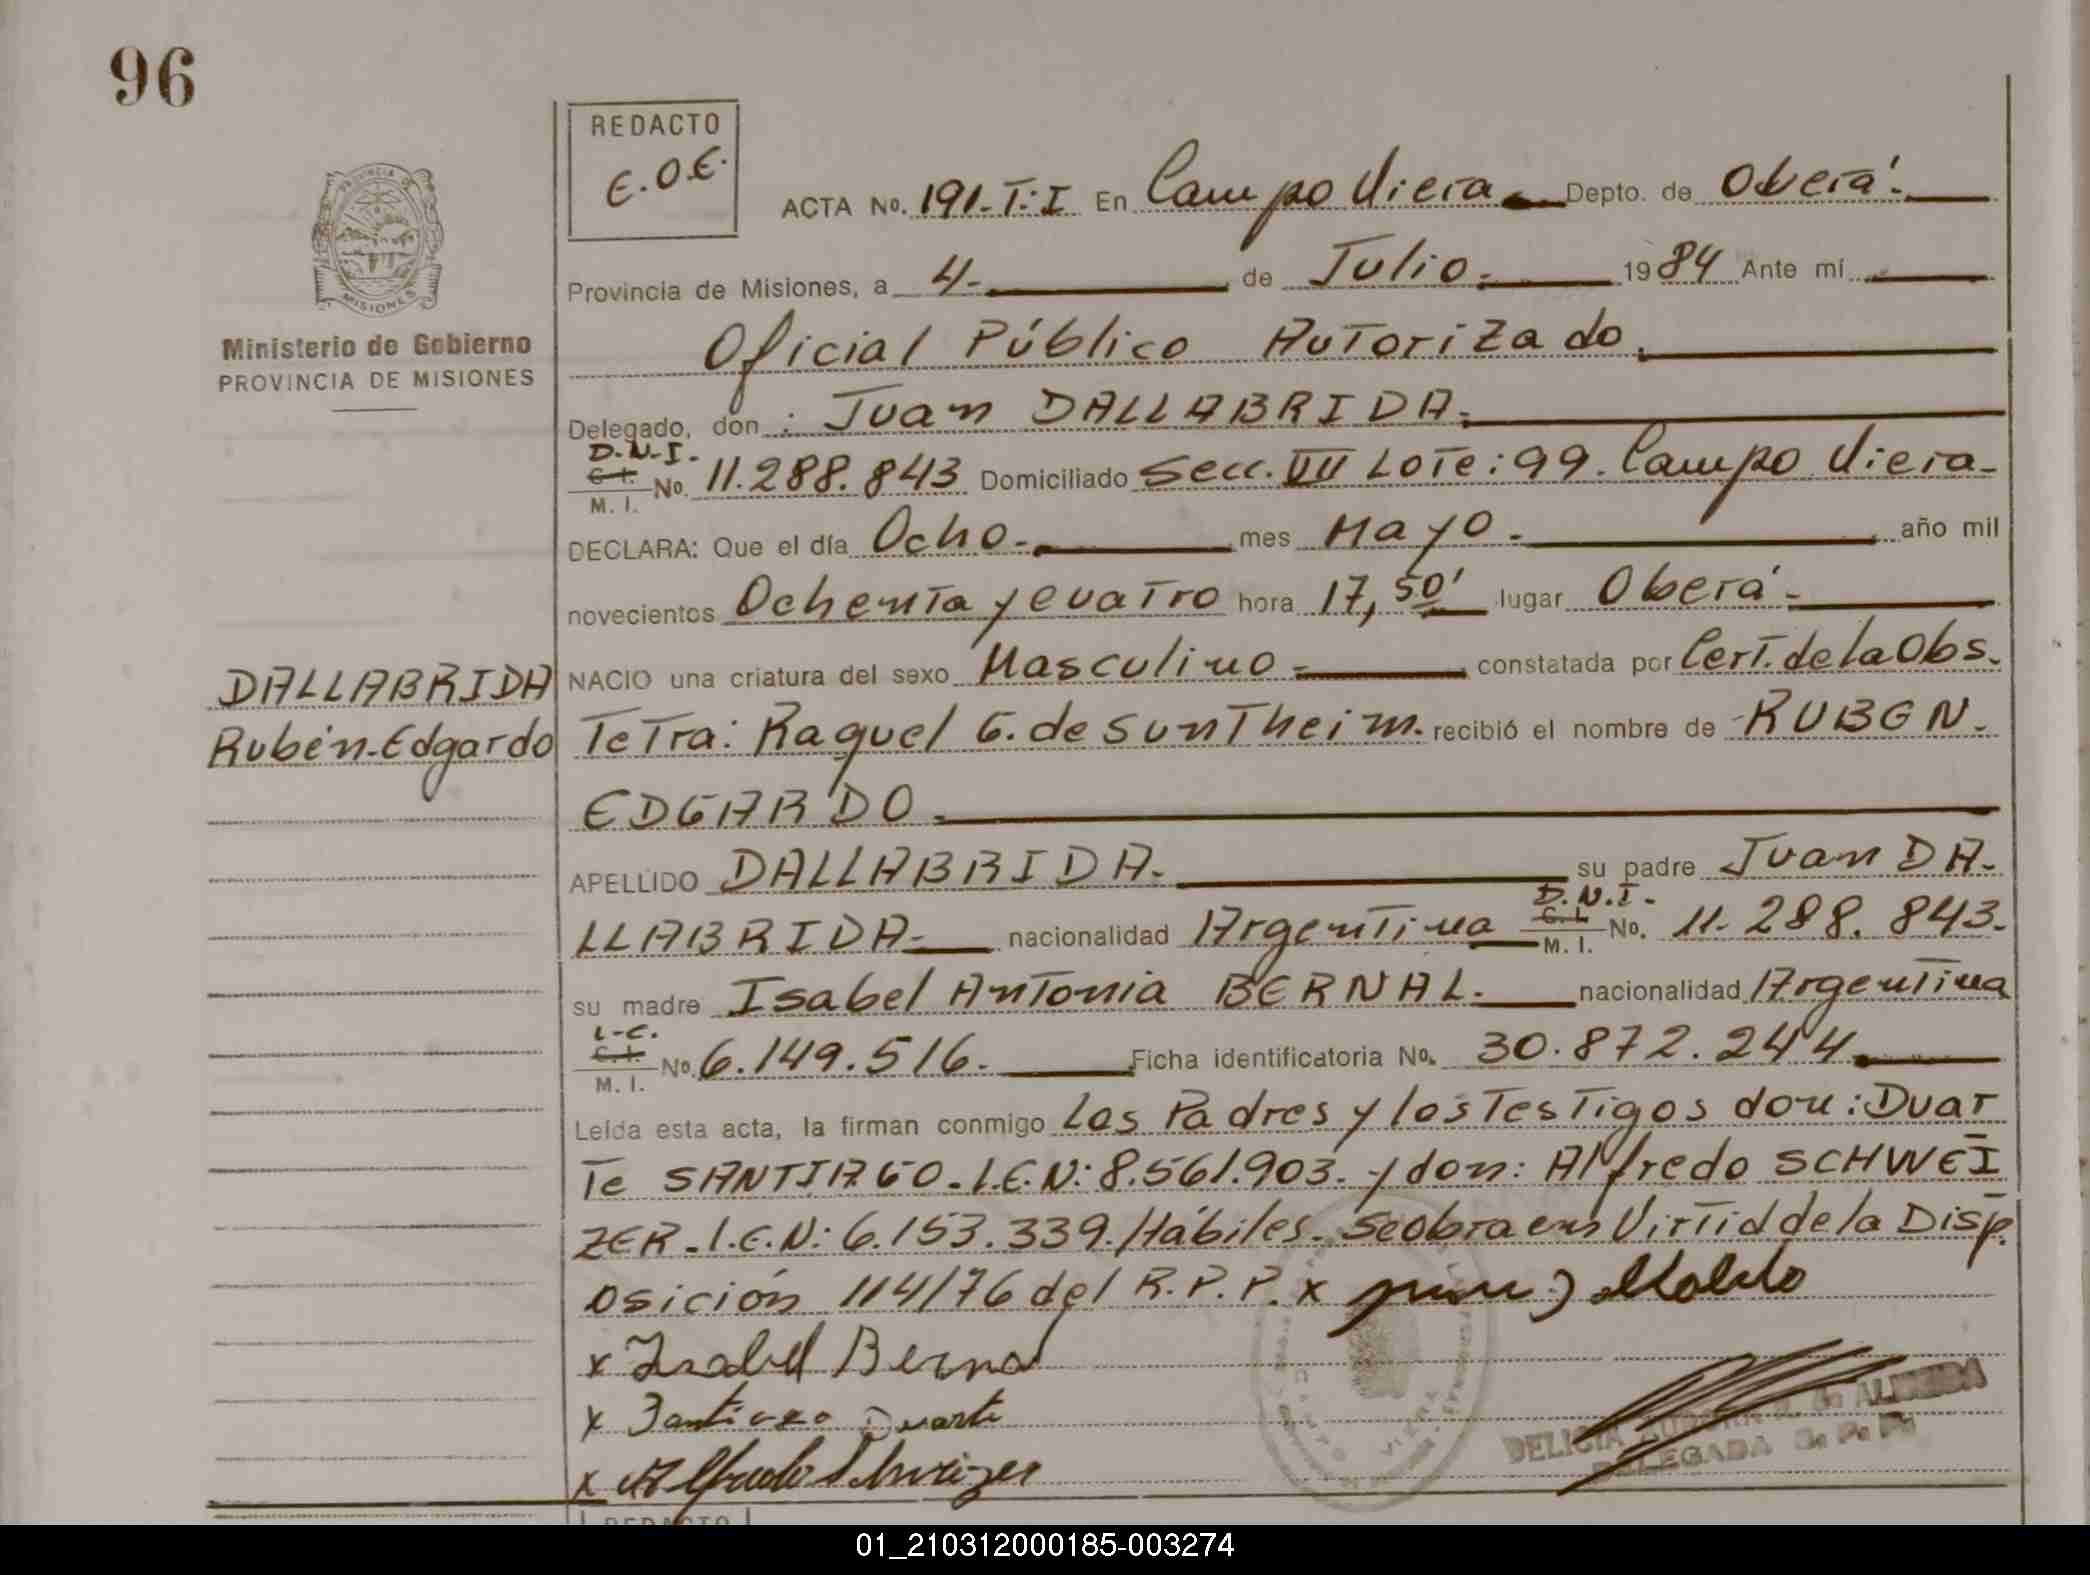 96
REDACTO
E.O.E.
PROVINCIA DE
MISIONES
Ministerio de Gobierno
PROVINCIA DE MISIONES
ACTA No. 191-T:I En Campo Viera Depto. de Oberá.
Provincia de Misiones, a 4- de Julio. 1984 Ante mí
Oficial Público Autorizado.
Delegado, don: Juan DALLABRIDA.
D.N.I.
C.I.
M. I. No. 11.288.843 Domiciliado Secc. VII Lote: 99. Campo Viera-
DECLARA: Que el día Ocho. mes Mayo. año mil
novecientos Ochenta y cuatro hora 17,50' lugar Oberá-
NACIO una criatura del sexo Masculino- constatada por Cert. de la Obs.
DALLABRIDA
Rubén-Edgardo
Tetra: Raquel G. de Suntheim. recibió el nombre de RUBEN-
EDGARDO.
APELLIDO DALLABRIDA. su padre Juan DA-
LLABRIDA- nacionalidad Argentina D.N.I. C.I. M. I. No. 11.288.843.
su madre Isabel Antonia BERNAL. nacionalidad Argentina
L.C.
C.I.
M. I. No. 6.149.516. Ficha identificatoria No. 30.872.244
Leída esta acta, la firman conmigo Los Padres y los Testigos don: Duar
te SANTIAGO. L.E.N: 8.561.903. y don: Alfredo SCHWEI
ZER. L.E.N: 6.153.339. Hábiles. Se obra en Virtid de la Disp.
osición 114/76 del R.P.P. x
x Isabel Bernal
x Santiago Duarte
x Alfredo Schweizer
DELICIA R. de ALMEIDA
DELEGADA R. P. P.
REDACTO
01_210312000185-003274